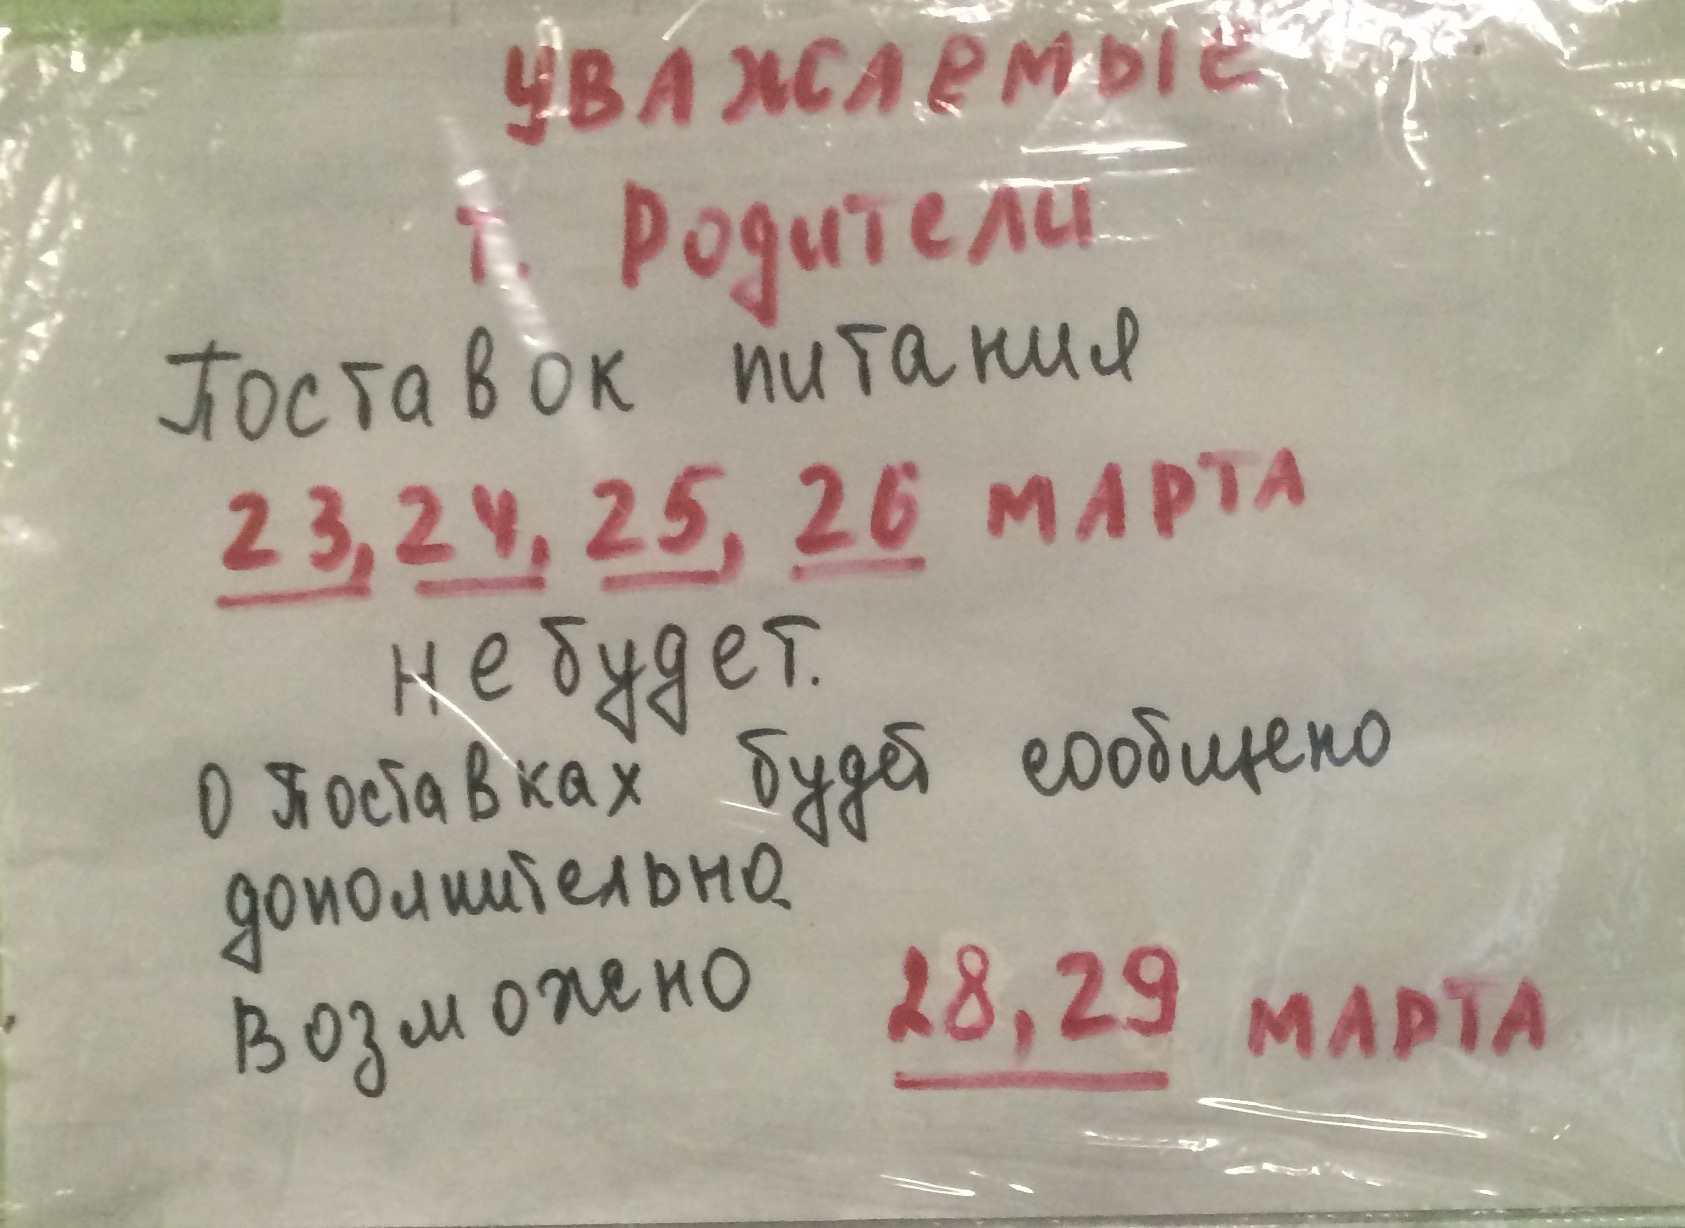 УВАЖАЕМЫЕ
т. Родители
Поставок питания
23, 24, 25, 26 МАРТА
не будет.
О поставках будет сообщено
дополнительно.
Возможено 28, 29 МАРТА